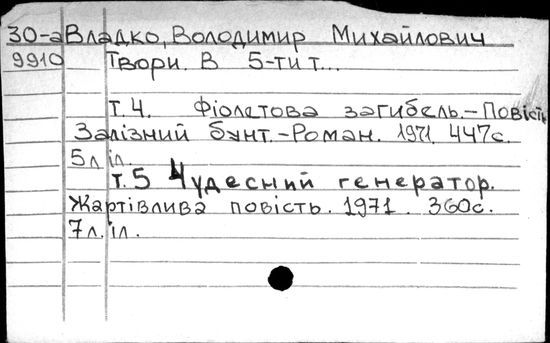 30-а Владко, Володимир Михайлович
9910 Твори. В 5-ти т...
т.4. Фіолетова загибель.-Повість
Залізний бунт.-Роман. 1971. 447с.
5л іл.
т.5 Чудесний генератор.
Жартівлива повість. 1971. 360с.
7л. іл.